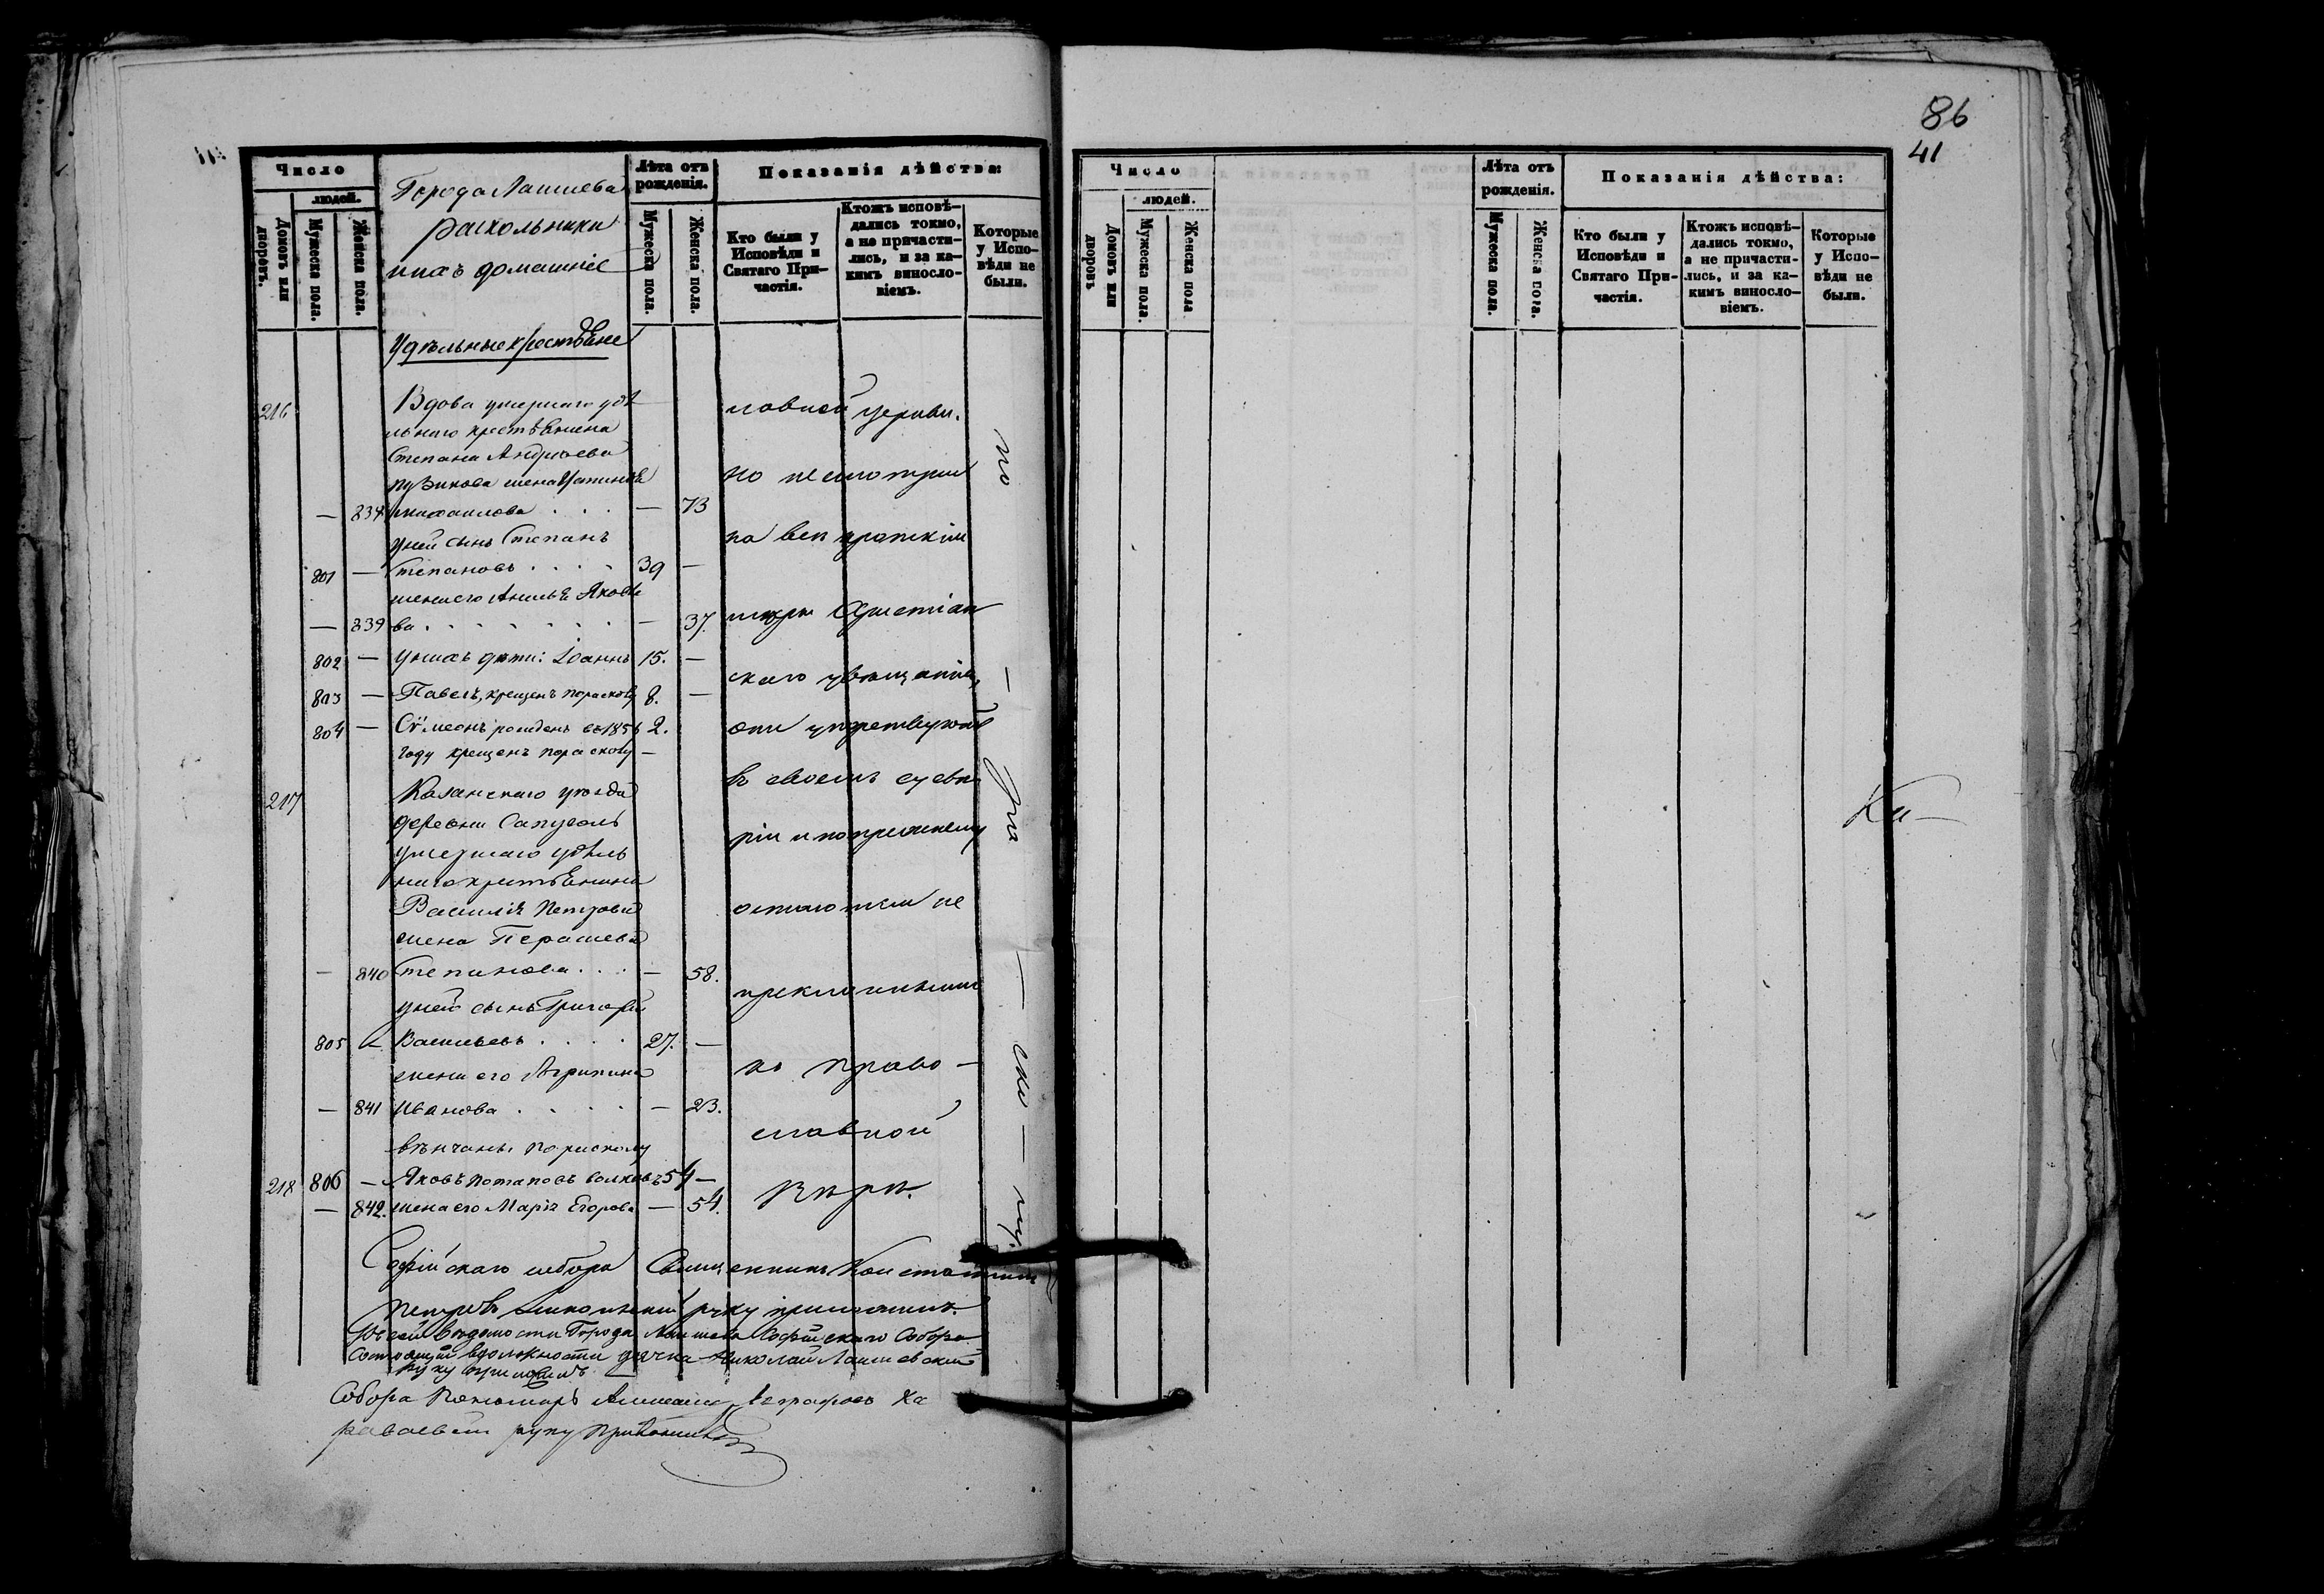 86
41
Число
людей.
Домовъ или дворовъ.
Мужеска пола.
Женска пола.
Города Лаишева
раскольники
ихъ домашніе
Лѣта отъ рожденія.
Мужеска пола.
Женска пола.
Показанія дѣйства:
Кто были у Исповѣди и Святаго Причастія.
Ктожъ исповѣдались токмо, а не причастились, и за какимъ винословіемъ.
Которые у Исповѣди не были.
Удѣльные крестьяне
216 Вдова умершаго удѣ
льнаго крестьянина
Степана Андреева
жена Устинья
— 838 михаилова . . . — 73
у ней сынъ Степанъ
801 — Степановъ . . . . 39 —
жена его Акилья Яковле
— 839 ва . . . . . . . — 37.
802 — У нихъ дѣти: Іоаннъ 15. —
803 — Павелъ, крещенъ порасколу 8. —
804 — Сѵмеонъ рожденъ въ 1856 2.
году крещенъ порасколу —
217 Казанскаго уѣзда
деревни
умершаго удѣль
наго крестьянина
Василія Петрова
жена
— 840 Степанова . . . — 58.
у ней сынъ Григорій
805 — Васильевъ . . . . 27. —
жена его Агрипина
— 841 Иванова . . . . . — 23.
вѣнчаны порасколу
218 806 — Яковъ Потаповъ волковъ 54 —
— 842. жена его Марія Егорова — 54.
славной церкви.
но несмотря
на всѣ кроткія
мѣры Христіан
скаго увѣщанія,
они упорствуютъ
въ своемъ суевѣ
ріи и попрежнему
остаются не
преклонными
къ право —
славной
вѣрѣ.
по
—
рас
—
ско
—
лу.
Софійскаго собора Священникъ Константинъ
Петровъ руку приложилъ.
Къ сей вѣдомости Города Лаишева Софійскаго Собора
Состоящій въ должности дьячка Николай Лаишевскій
руку приложилъ
Собора Пономарь
руку приложилъ
Число
людей.
Домовъ или дворовъ
Мужеска пола.
Женска пола
Лѣта отъ рожденія.
Мужеска пола.
Женска пола.
Показанія дѣйства:
Кто были у Исповѣди и Святаго Причастія.
Ктожъ исповѣдались токмо, а не причастились, и за какимъ винословіемъ.
Которые у Исповѣди не были.
Ка—